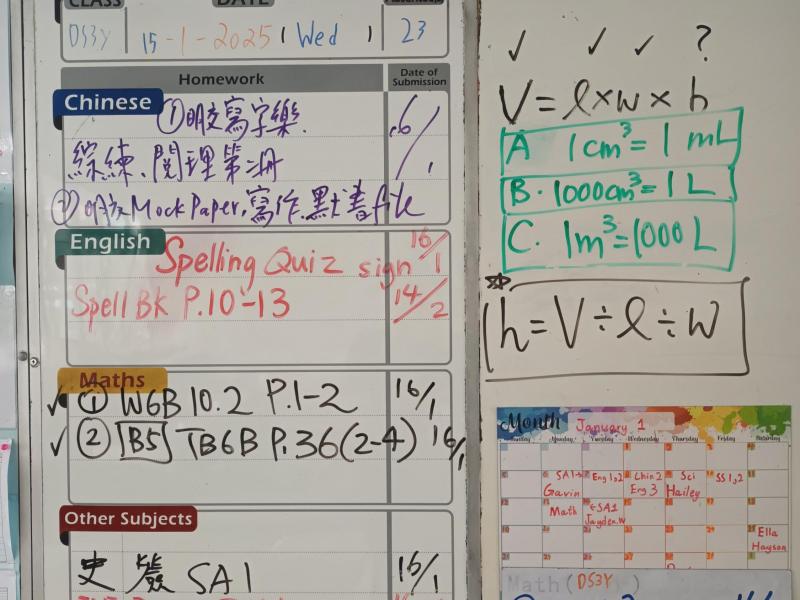 CLASS DATE
DS3Y 15-1-2025 Wed 23
Homework Date of Submission
Chinese ①明交寫字樂.
綜練.閱理第二冊
②明交Mock Paper,寫作,默書file
English Spelling Quiz sign 16/1
Spell Bk P.10-13 14/2
Maths
① W6B 10.2 P.1-2 16/1
② B5 TB6B P.36(2-4) 16/1
Other Subjects
史 簽 SA1 16/1
✓ ✓ ✓ ?
V=l×w×h
A 1cm³=1 mL
B. 1000cm³=1 L
C. 1m³=1000 L
h=V÷l÷w
Month January 1
Monday Tuesday Wednesday Thursday Friday Saturday
SA1→ Eng 1,2 Chin 2 Sci SS 1,2
Gavin Eng 3 Hailey
Math ←SA1
Jayden.W
Ella
Hayson
Math (DS3Y )